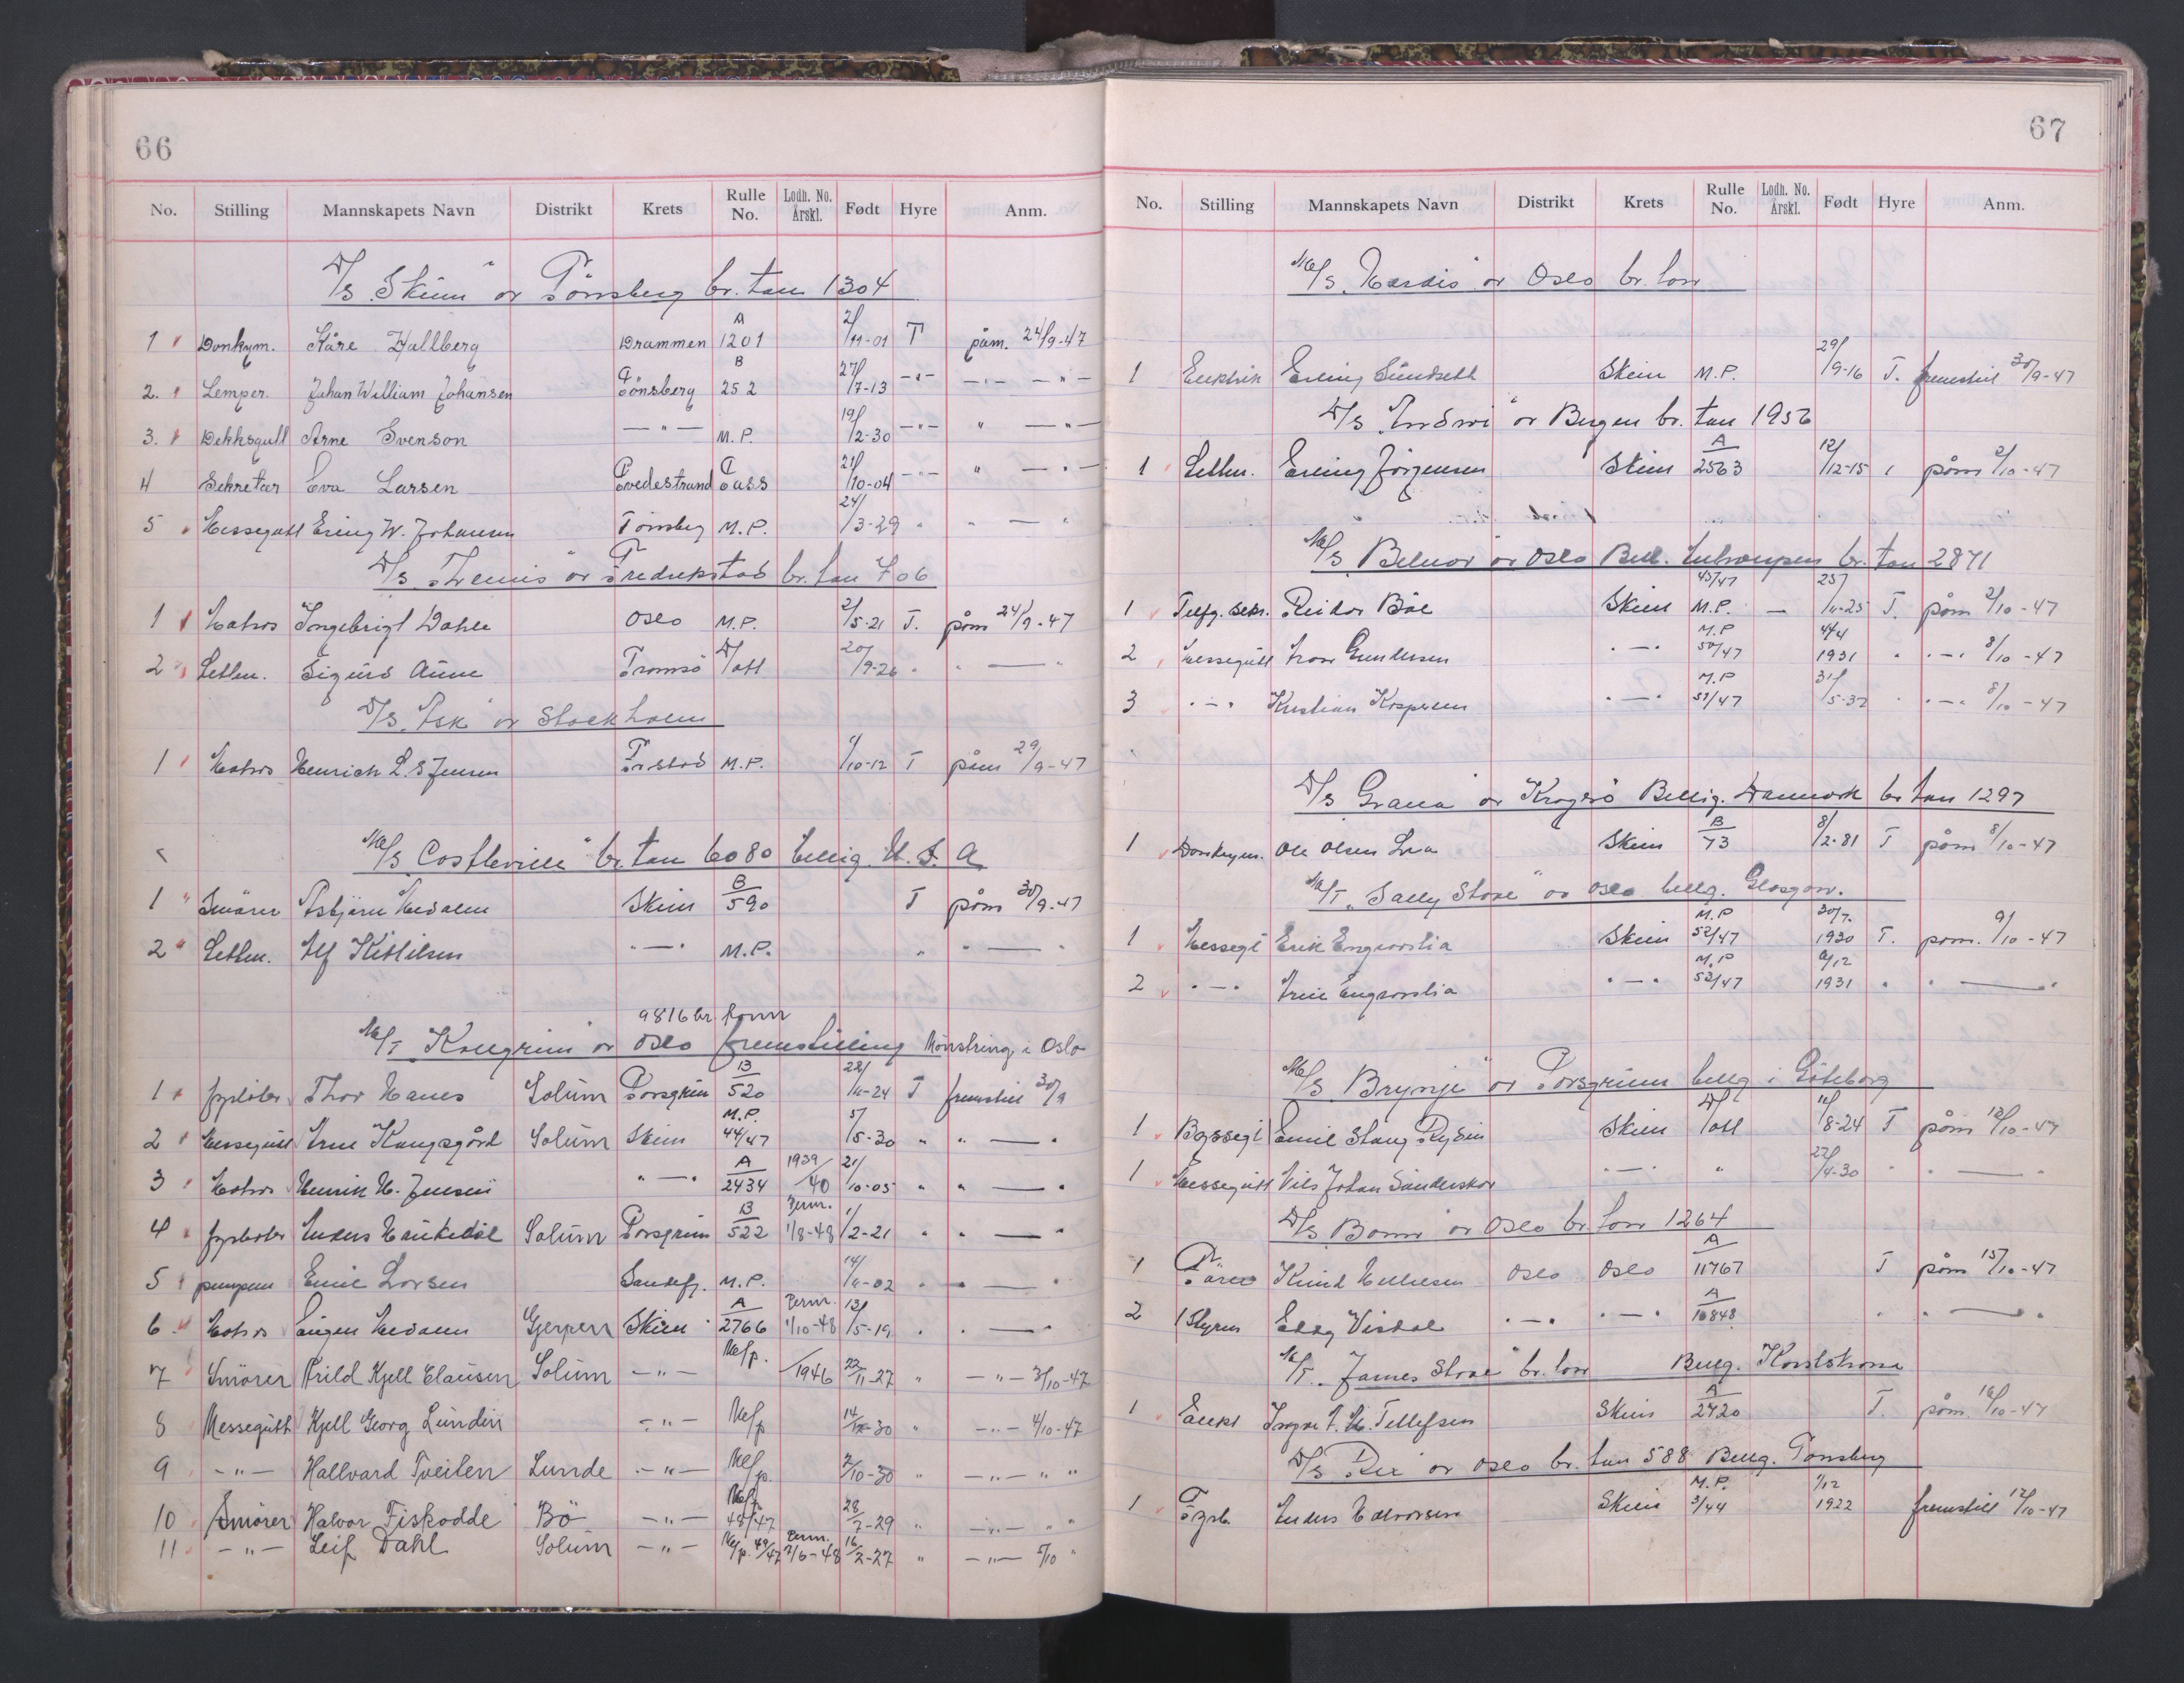 66
No. Stilling Mannskapets Navn Distrikt Krets Rulle No. Lodh. No. Årskl. Født Hyre Anm.
D/S "Skum" av Tönsberg br. tonn 1304
1 Donkym. Kåre Hallberg Drammen A 1201 2/11-01 T påm. 24/9-47
2. Lemper. Johan William Johansen Tönsberg B 252 27/7-13 -"- -"- -"-
3. Dekksgutt Arne Svenson -"- M.P. 19/2-30 -"- " -"-
4 Sekretær Eva Larsen Tvedestrand Tass 21/10-04 -"- " -"-
5 Messegutt Erling W. Johansen Tönsberg M.P. 24/3-29 " " — "
D/S "Themis" av Fredrikstad br. tonn 706
1 Matros Ingebrigt Dahle Oslo M.P. 2/5-21 T. påm 24/9-47
2 Lettm. Sigurd Aune Tromsö D/att 20/9-26 " " — "
D/S "Ask" av Stockholm
1 Matros Henrich L. S Jensen Fr.stad M.P. 1/10-12 T påm 29/9-47
M/S "Costleville" br. tonn 6080 bellig. U. S. A
1 Smörer Asbjörn Medalen Skien B 590 T påm 30/9-47
2 Lettm. Alf Kittilsen "—" M.P. " " — "
9816 br. tonn
M/T "Kollgrim" av Oslo fremstilling Mönstring i Oslo
1 fyrböter Thor Hanes Solum Porsgrun B 520 22/11-24 T fremstill 30/9
2 Messegutt Arne Kongsgård Solum Skien M.P. 44/47 5/5-30 " " — "
3 Matros Henrik H. Jensen "—" A 2434 1939/40 21/10-05 " " — "
4 fyrböter Anders Haukedal Solum Porsgrun B 522 Perm. 1/8-48 1/2-21 " " — "
5 pumpem Emil Larsen Sandefj. M.P. 14/11-02 " " — "
6 Matros Eugen Medalen Gjerpen Skien A 2766 Perm. 1/10-48 13/5-19 " " — "
7 Smörer Arild Kjell Clausen Solum -"- M/p. /1946 22/11-27 " -"- 3/10-47
8 Messegutt Kjell Georg Lundin -"- M/p 14/-30 " -"- 4/10-47
9 -"- Hallvard Tveiten Lunde -"- M/p. 2/10-30 " -"- " "
10 Smörer Halvor Fiskodde Bö -"- M/p 48/47 28/7-29 " -"- " "
11 -"- Leif Dahl Solum -"- M/p. 49/47 Perm. 2/6-48 16/2-27 " -"- 5/10 "
67
No. Stilling Mannskapets Navn Distrikt Krets Rulle No. Lodh. No. Årskl. Født Hyre Anm.
M/S "Hardis" av Oslo br. tonn
1 Elektrik Erling Sundsett Skien M.P. 29/9-16 T. fremstill 30/9-47
D/S av Bergen br. tonn 1956
1 Lettm. Erling Jörgensen Skien A 2563 12/12-15 påm 2/10-47
M/S "Belnor" av Oslo Bell. Antwerpen br. tonn 2871
1 Telfg. sekr. Reidar Båe Skien 45/47 M.P. — 25/11-25 T. påm 2/10-47
2 Messegutt Gundersen "—" M.P 50/47 4/4 1931 " "—" 8/10-47
3 "—" Kristian Kaspersen "—" M.P 51/47 31/5-32 " "—" 8/10-47
D/S "Grana" av Kragerö Bellig. Danmark br tonn 1297
1 Donkeym. Ole Olsen Lia Skien B 73 8/2-81 T påm 8/10-47
M/T "Sally Stove" av Oslo bellg. Glasgow.
1 Messegt Erik Engravslia Skien M.P 52/47 30/7. 1930 T. påm. 9/10-47
2 "—" Arne Engravslia "—" M.P 53/47 /12 1931 " " — "
M/S "Brynje" av Porsgrunn bellg i Göteborg
1 Byssegt Emil Stang Rydin Skien D/att 11/8-24 T påm 13/10-47
1 Messegutt Nils Johan Sanderskov "—" " 22/4-30 " " — "
D/S "Bonn" av Oslo br. tonn 1264
1 Knud Oslo Oslo A 11767 T påm 15/10-47
2 Styrm Eddy Visdal "—" "—" A 16848 " " — "
M/T. "James Stove" br. tonn Bellg.
1 Elekt Tellefsen Skien A 2420 T. påm. 16/10-47
D/S "Rix" av Oslo br. tonn 588 Bellg. Tönsberg
1 Fyrb. Anders Halvorsen Skien M.P. 3/44 1/12 1922 fremstill 12/10-47